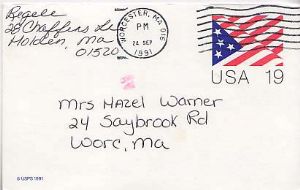 Begele
28 Chaffins Ln
Holden, Ma
01520
WORCESTER, MA 016
PM
24 SEP
1991
USA 19
Mrs Hazel Warner
24 Saybrook Rd
Worc, Ma
© USPS 1991